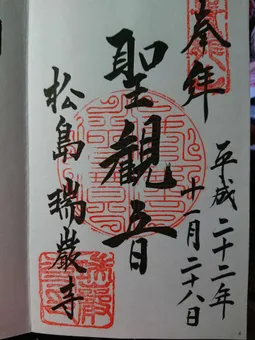 奉拝
平成二十二年
十一月二十八日
聖観音
松島瑞巌寺